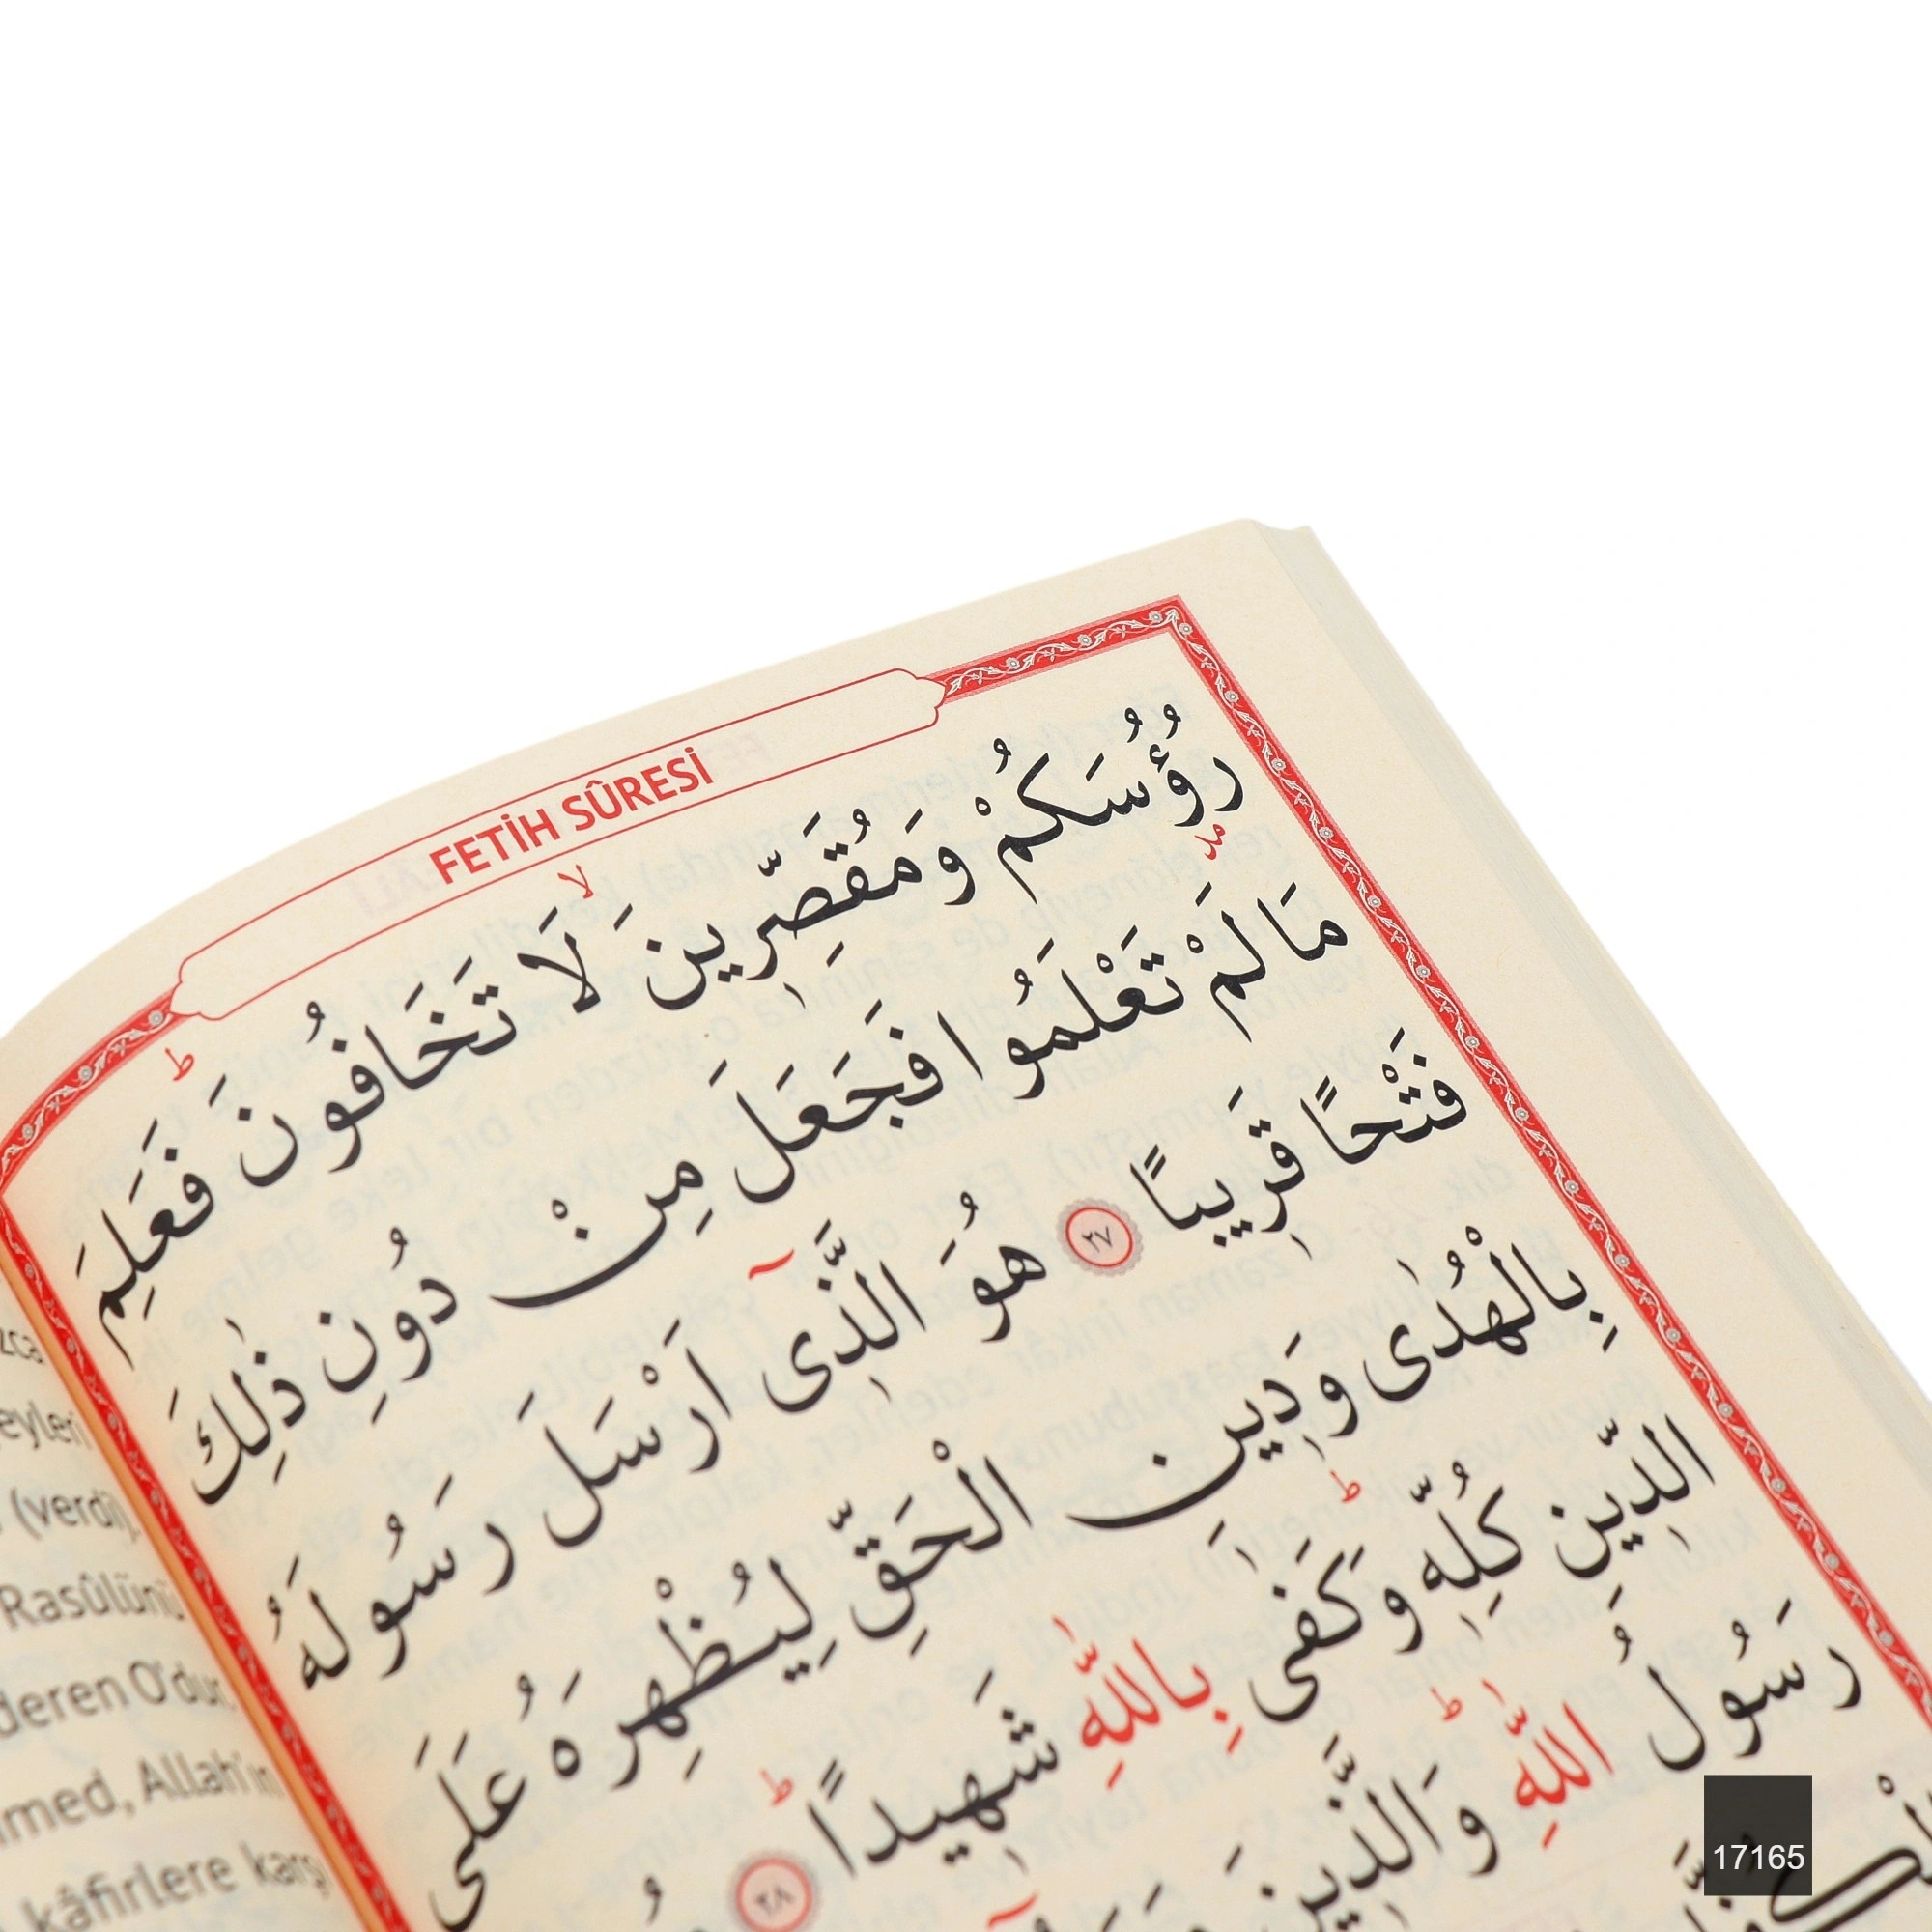 FETİH SÛRESİ
رُؤُسَكُمْ وَمُقَصِّرِينَ لَا تَخَافُونَ فَعَلِمَ
مَا لَمْ تَعْلَمُوا فَجَعَلَ مِنْ دُونِ ذٰلِكَ
فَتْحًا قَرِيبًا ٢٧ هُوَ الَّذِى اَرْسَلَ رَسُولَهُ
بِالْهُدٰى وَدِينِ الْحَقِّ لِيُظْهِرَهُ عَلَى
الدِّينِ كُلِّهِ وَكَفٰى بِاللّٰهِ شَهِيدًا ٢٨
رَسُولُ اللّٰهِ وَالَّذِينَ
eyleri
(verdi).
Rasûlünü
deren O'dur.
med, Allah'ın
kâfirlere karşı
17165